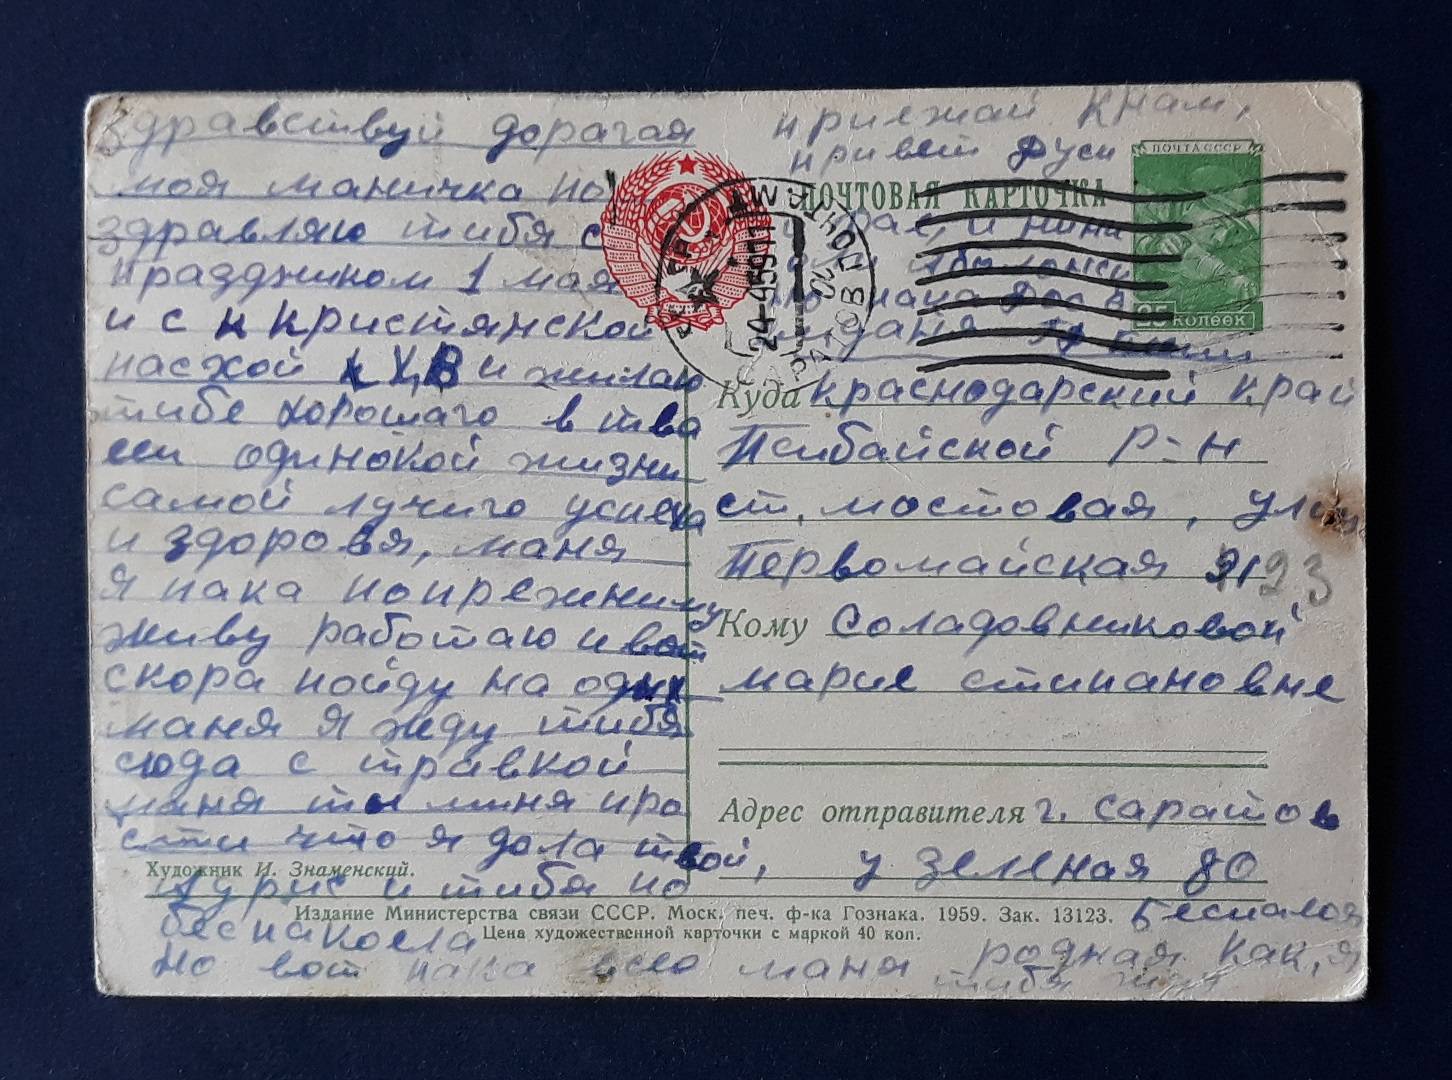 здравствуй дорагая
моя маничка по
здравляю тибя с
праздником 1 мая
и с н кристянской
пасхой ХВ и жилаю
тибе хорошаго в тва
еи одинокой жизни
самой лучиго успеха
и здоровя, маня
я пака попрежниму
живу работаю и вот
скора пойду на
маня я жду тибя
сюда с травкой
маня ты миня про
сти что я дола твой,
Художник И. Знаменский.
и тибя по
беспакоела
но вот пака всио маня родная как, я
тибя
приежай кнам,
привет Дуси
ПОЧТА СССР
ПОЧТОВАЯ КАРТОЧКА
и нини
25 копеек
САРАТОВ ПОЧТАМТ
24-4 59-11
Куда краснодарский край
Псибайской р-н
ст. мостовая, улиц
Первомайская 23
Кому Соладовниковой
марие стипановне
Адрес отправителя г. саратов
у зеленая 80
Беспалоя
Издание Министерства связи СССР. Моск. печ. ф-ка Гознака. 1959. Зак. 13123.
Цена художественной карточки с маркой 40 коп.